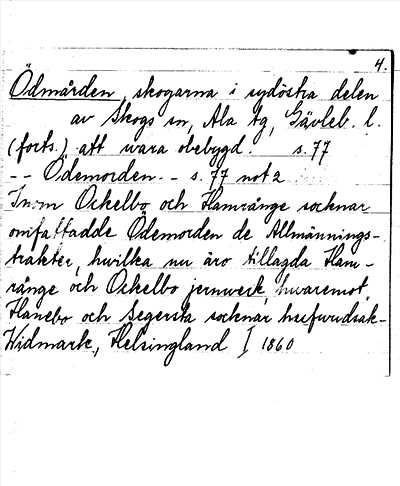 4.
Ödmården, skogarna i sydöstra delen
av Skogs sn, Ala tg, Gävleb. l.
(forts.) att wara obebygd. s. 77
-- Ödemorden. - s. 77 not 2
Inom Ockelbo och Hamrånge socknar
omfattadde Ödemorden de Allmännings-
trakter, hwilka nu äro tillagda Ham-
rånge och Ockelbo jernwerk, hwaremot
Hanebo och Segersta socknar hufwudsak-
Widmark, Helsingland I 1860